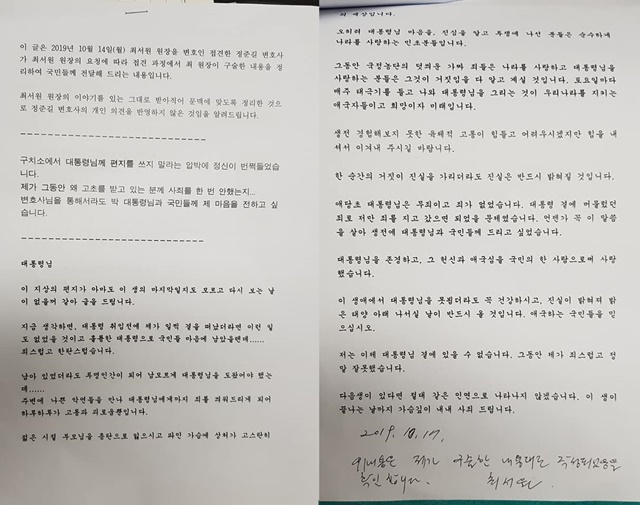 이 글은 2019년 10월 14일(월) 최서원 원장을 변호인 접견한 정준길 변호사
가 최서원 원장의 요청에 따라 접견 과정에서 최 원장이 구술한 내용을 정
리하여 국민들께 전달해 드리는 내용입니다.
최서원 원장의 이야기를 있는 그대로 받아적어 문맥에 맞도록 정리한 것으
로 정준길 변호사의 개인 의견을 반영하지 않은 것임을 알려드립니다.
구치소에서 대통령님께 편지를 쓰지 말라는 압박에 정신이 번쩍들었습
니다.
제가 그동안 왜 고초를 받고 있는 분께 사죄를 한 번 안했는지...
변호사님을 통해서라도 박 대통령님과 국민들께 제 마음을 전하고 싶
습니다.
대통령님
이 지상의 편지가 아마도 이 생의 마지막일지도 모르고 다시 보는 날
이 없을꺼 같아 글을 드립니다.
지금 생각하면, 대통령 취임전에 제가 일찍 곁을 떠났더라면 이런 일
도 없었을 것이고 훌륭한 대통령으로 국민들 마음에 남았을텐데......
죄스럽고 한탄스럽습니다.
남아 있었더라도 투명인간이 되어 남모르게 대통령님을 도왔어야 했는
데......
주변에 나쁜 악연들을 만나 대통령님에게까지 죄를 씌워드리게 되어
하루하루가 고통과 괴로움뿐입니다.
젊은 시절 부모님을 흉탄으로 잃으시고 파인 가슴에 상처가 고스란히
의 세상입니다.
오히려 대통령님 마음을, 진심을 알고 투쟁에 나선 분들은 순수하게
나라를 사랑하는 민초분들입니다.
그동안 국정농단의 덧씌운 가짜 죄들은 나라를 사랑하고 대통령님을
사랑하는 분들은 그것이 거짓임을 다 알고 계실 것입니다. 토요일마다
매주 태극기를 들고 나와 대통령님을 그리는 것이 우리나라를 지키는
애국자들이고 희망이자 미래입니다.
생전 경험해보지 못한 육체적 고통이 힘들고 어려우시겠지만 힘을 내
셔서 이겨내 주시길 바랍니다.
한 순간의 거짓이 진실을 가리더라도 진실은 반드시 밝혀질 것입니다.
애당초 대통령님은 무죄이고 죄가 없었습니다. 대통령 곁에 머물렀던
죄로 저만 죄를 지고 갔으면 되었을 문제였습니다. 언젠가 꼭 이 말씀
을 살아 생전에 대통령님과 국민들께 드리고 싶었습니다.
대통령님을 존경하고, 그 헌신과 애국심을 국민의 한 사람으로써 사랑
했습니다.
이 생애에서 대통령님을 못뵙더라도 꼭 건강하시고, 진실이 밝혀져 밝
은 태양 아래 나서실 날이 반드시 올 것입니다. 애국하는 국민들을 믿
으십시오.
저는 이제 대통령님 곁에 있을 수 없습니다. 그동안 제가 죄스럽고 정
말 잘못했습니다.
다음생이 있다면 절대 같은 인연으로 나타나지 않겠습니다. 이 생이
끝나는 날까지 가슴깊이 내내 사죄 드립니다.
2019. 10. 17.
위내용은 제가 구술한 내용대로 작성되었음을
확인합니다. 최서원